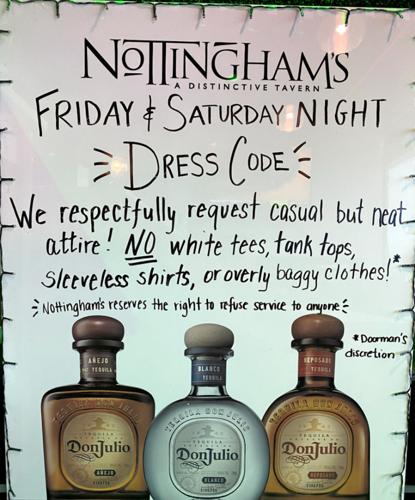 NOTTINGHAM'S
A DISTINCTIVE TAVERN
FRIDAY & SATURDAY NIGHT
DRESS CODE
We respectfully request casual but neat
attire! NO white tees, tank tops,
sleeveless shirts, or overly baggy clothes!*
Nottingham's reserves the right to refuse service to anyone
*Doorman's
discretion
AÑEJO
TEQUILA
TEQUILA DON JULIO
TEQUILA
Don Julio
AÑEJO
BLANCO
TEQUILA
TEQUILA DON JULIO
TEQUILA
Don Julio
BLANCO
REPOSADO
TEQUILA
TEQUILA DON JULIO
TEQUILA
Don Julio
REPOSADO